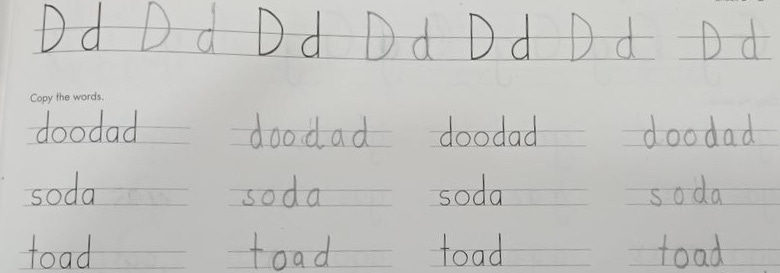 D d D d D d D d D d D d D d
Copy the words.
doodad doodad doodad doodad
soda soda soda soda
toad toad toad toad